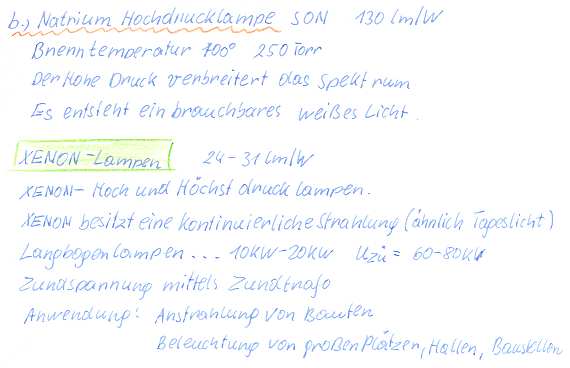 b.) Natrium Hochdrucklampe SON 130 lm/W
Brenntemperatur 700° 250 Torr
Der Hohe Druck verbreitert das Spektrum
Es entsteht ein brauchbares weißes Licht.
XENON-Lampen 24-31 lm/W
XENON- Hoch und Höchst drucklampen.
XENON besitzt eine kontinuierliche Strahlung (ähnlich Tageslicht)
Langbogenlampen ... 10KW-20KW Uzü = 60-80kV
Zündspannung mittels Zündtrafo
Anwendung: Anstrahlung von Bauten
Beleuchtung von großen Plätzen, Hallen, Baustellen